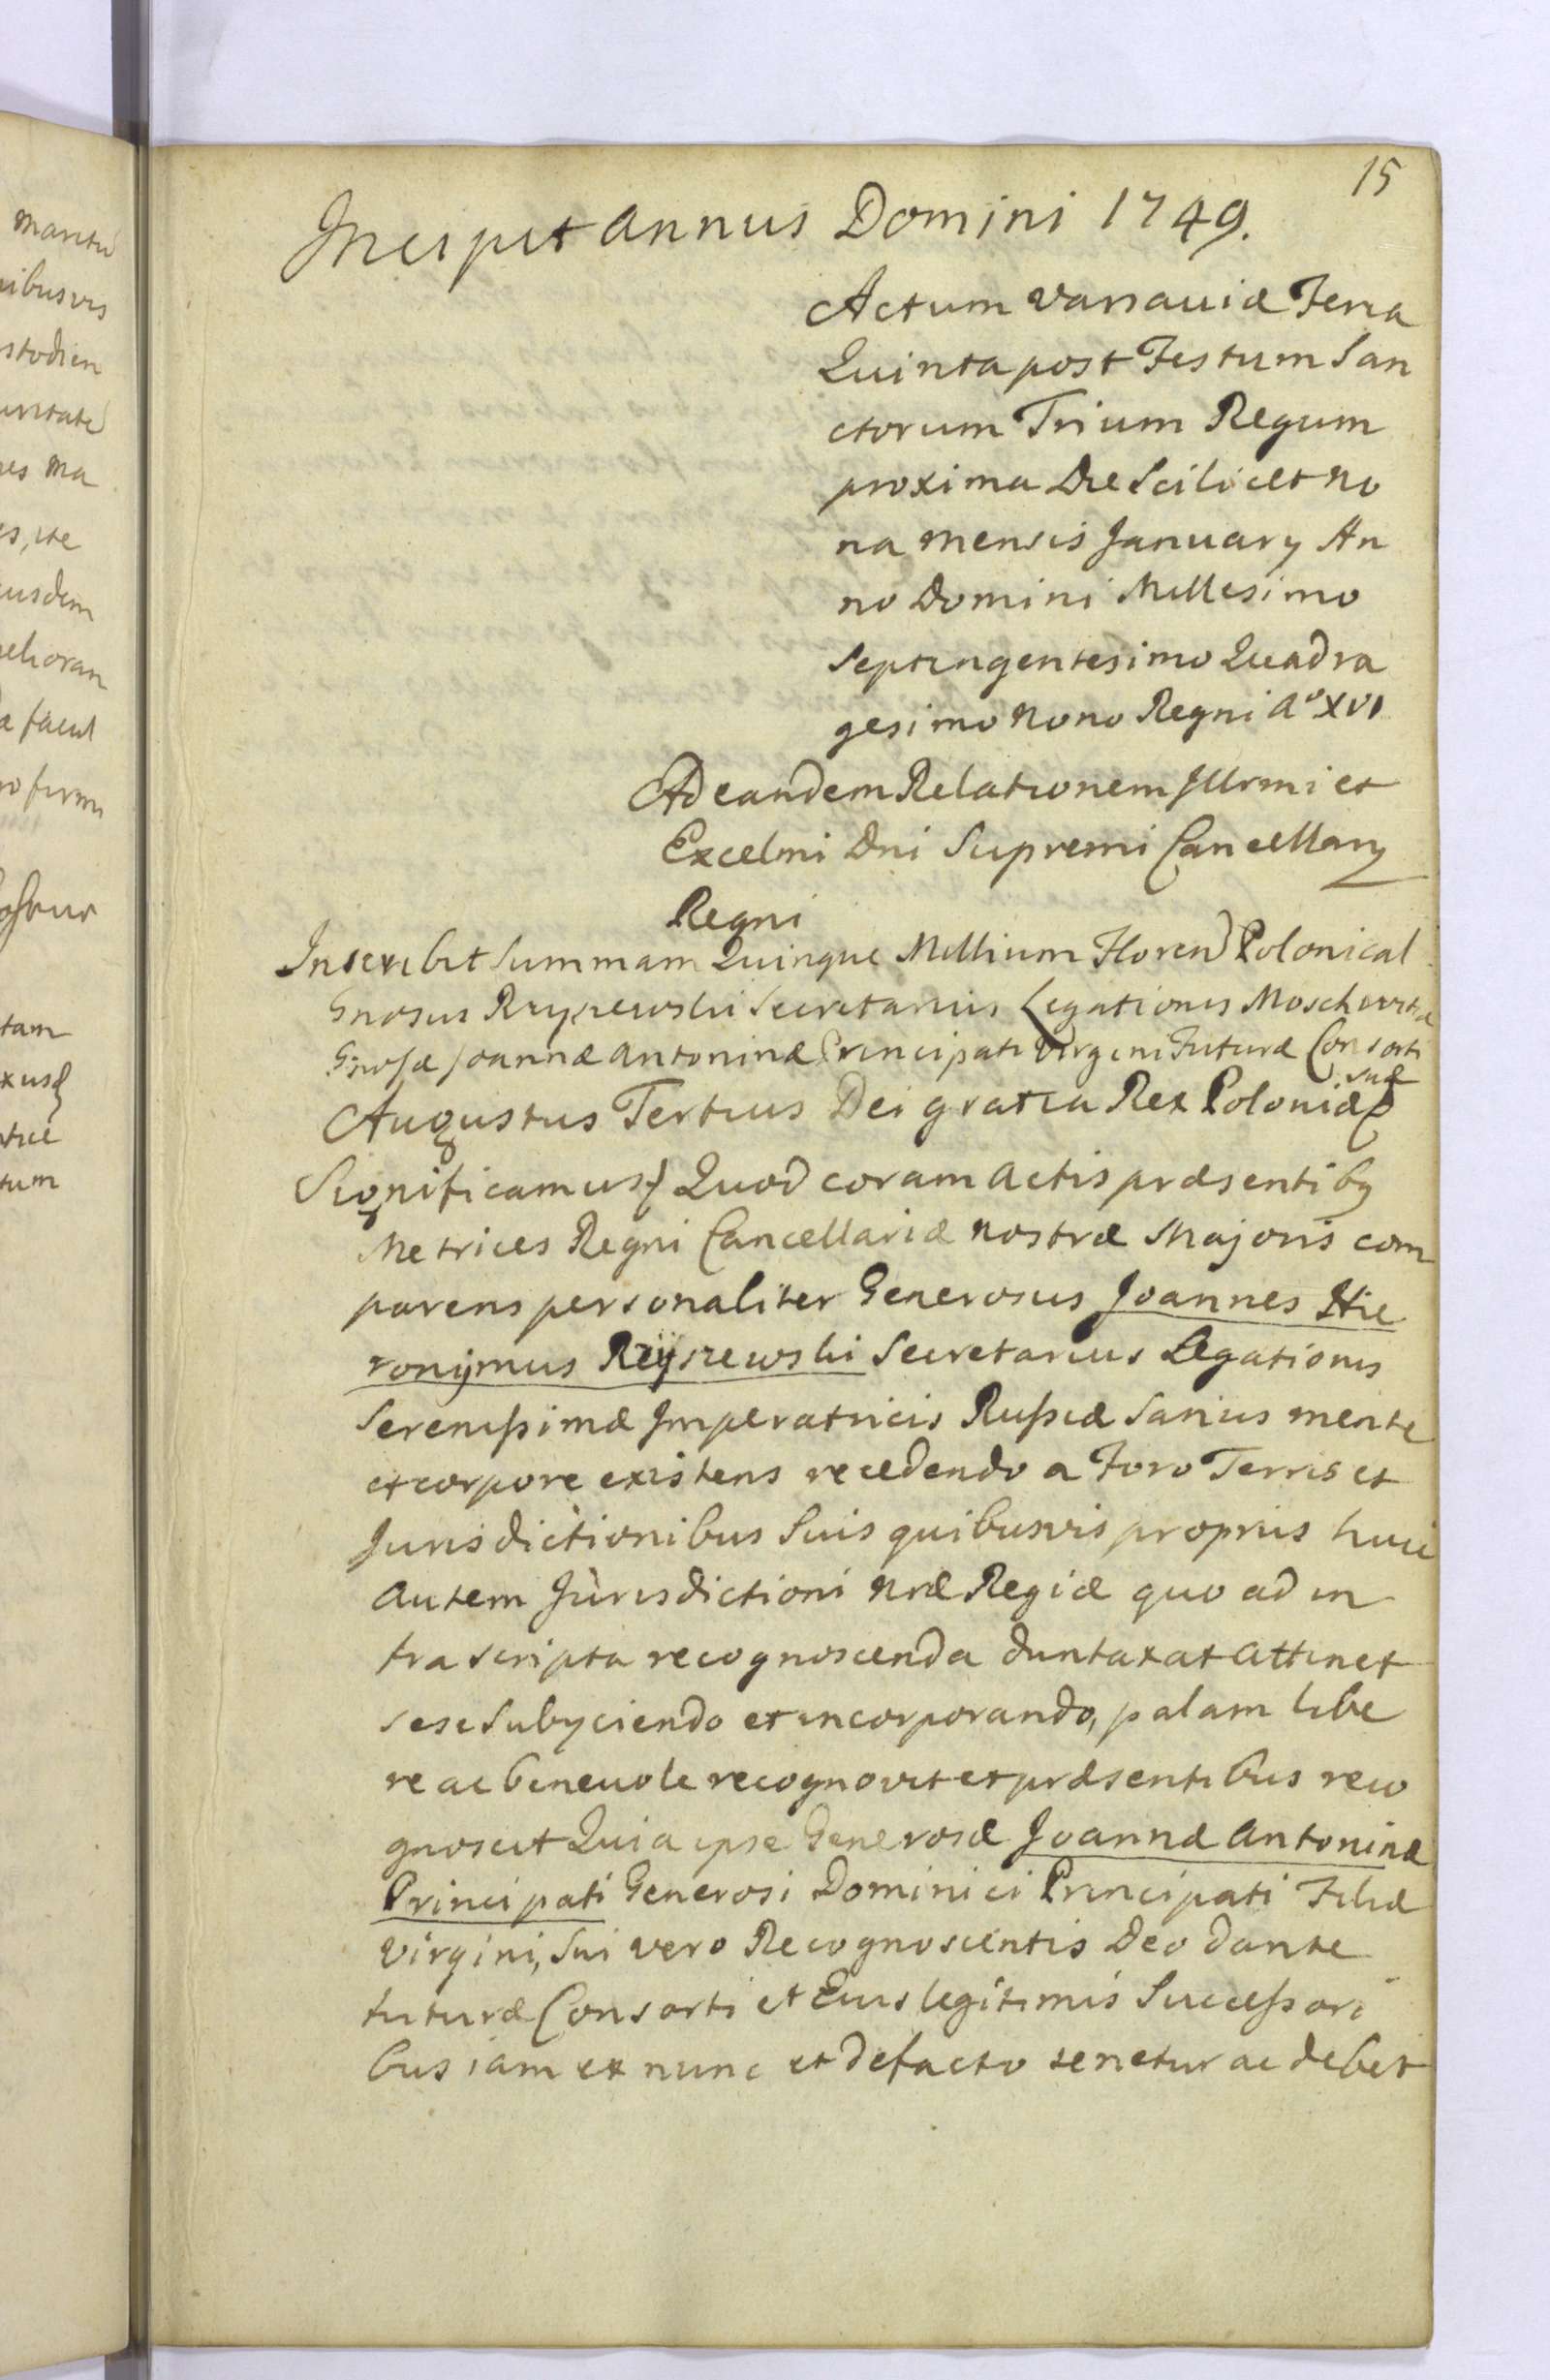 maritu
uibusvis
stodien
uritate
ues ma
es, ite
eiusdem
melioran
a facul
ro firmi
tam
xus
tum
15
Incipit Annus Domini 1749.
Actum Varsaviæ Feria
Quinta post Festum San
ctorum Trium Regum
proxima Die Scilicet no
na mensis January An
no Domini Millesimo
Septingentesimo Quadra
gesimo nono Regni Aº XVI
Ad eandem Relationem Illrmi et
Excelmi Dni Supremi Cancellary
Regni
Inscribit Summam Quinque Millium Floren Polonical
Gnosus Rzyszewski Secretarius Legationis Moschovitæ
Gnosæ Joannæ Antoninæ Principati Virgini Futuræ Consorti
suæ
Augustus Tertius Dei gratia Rex Poloniæ
Significamus Quod coram Actis præsentiby
Metrices Regni Cancellariæ nostræ Majoris com
parens personaliter Generosus Joannes Hie
ronÿmus Rzÿszewski Secretarius Legationis
Serenissimæ Imperatricis Russiæ Sanus mente
et corpore existens recedendo a Foro Terris et
Jurisdictionibus Suis quibusvis proprijs huic
autem Jurisdictioni nræ Regiæ quo ad in
fra scripta recognoscenda duntaxat attinet
sese Subyciendo et incorporando, palam libe
re ac benevole recognovit et præsentibus reco
gnoscit Quia ipse Generosæ Joannæ Antoninæ
Principati Generosi Dominici Principati Filiæ
Virgini, Sui vero Recognoscentis Deo dante
futuræ Consorti et Eius legitimis Successori
bus iam ex nunc et defacto tenetur ac debet